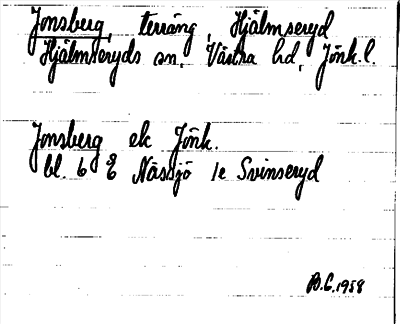 Jonsberg, terräng, Hjälmseryd
Hjälmseryds sn, Västra hd, Jönk. l.
Jonsberg ek Jönk.
bl. 6 E Nässjö 1e Svinseryd
B.G. 1958